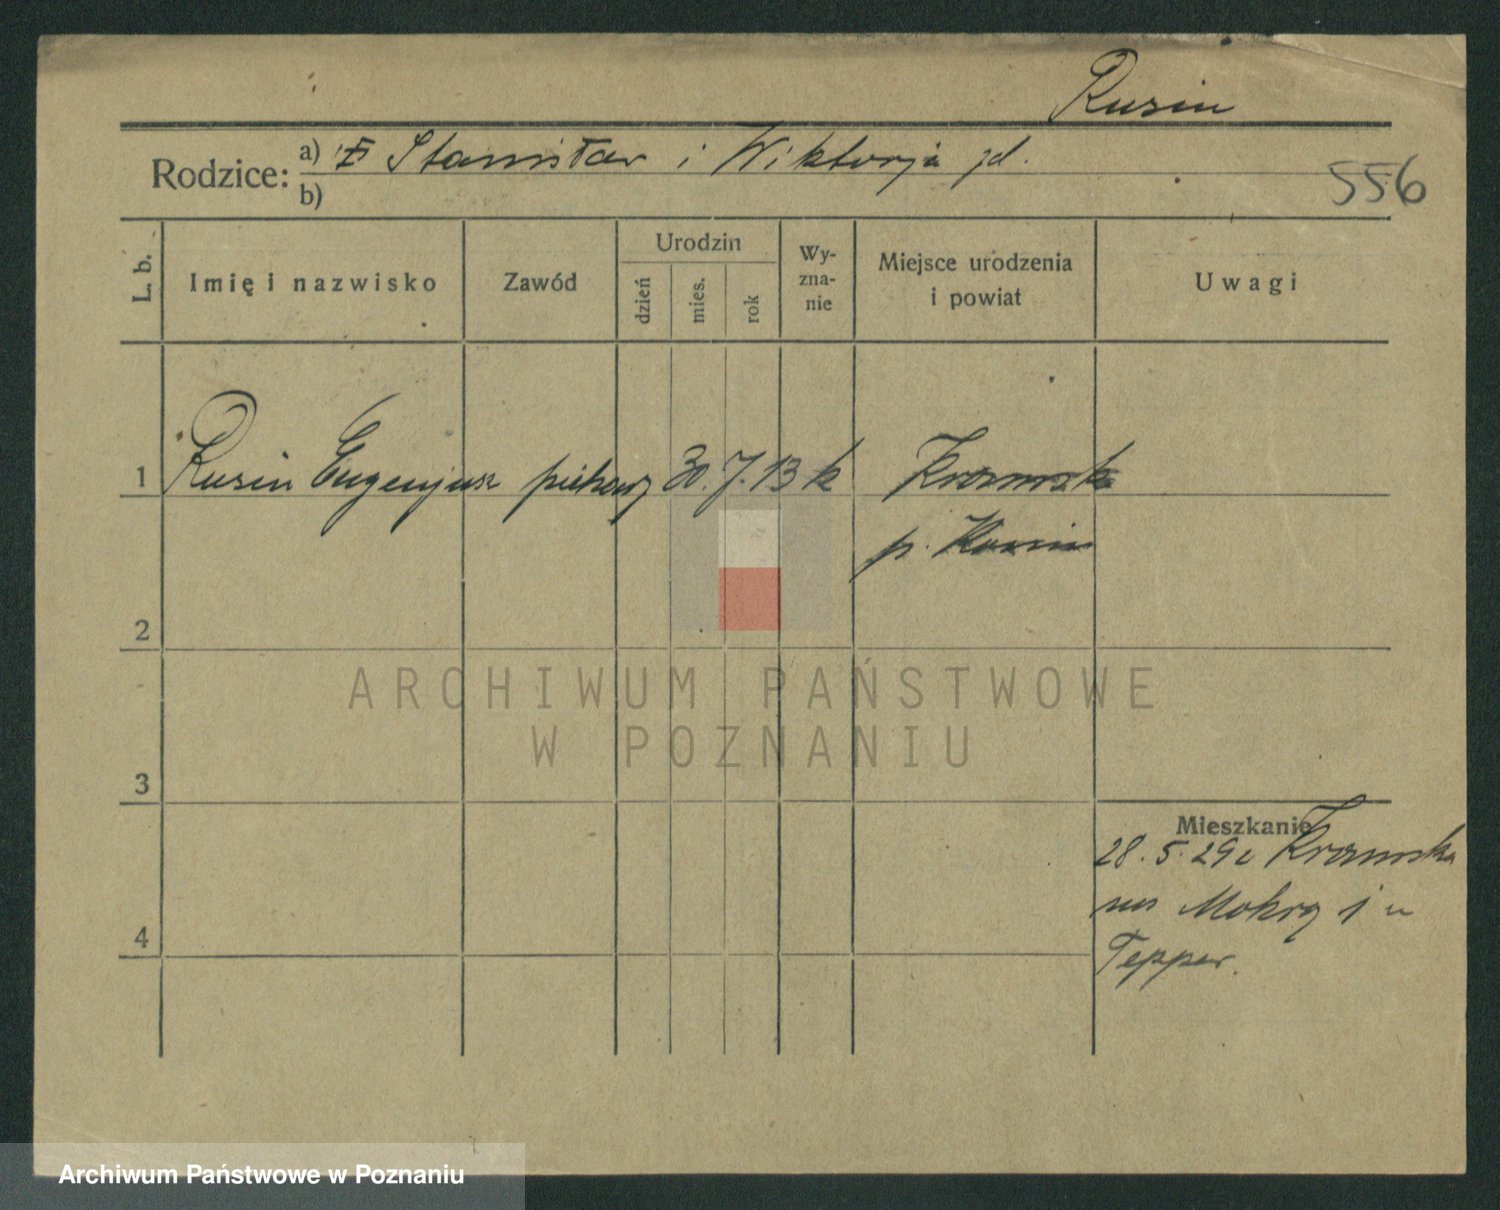 Rusin
Rodzice: a) Stanisław i Wiktorja zd.
b)
556
L. b.
Imię i nazwisko
Zawód
Urodzin
dzień
mies.
rok
Wy-
zna-
nie
Miejsce urodzenia
i powiat
Uwagi
1 Rusin Eugenjusz piekarz 30. 7. 13 k Kramsk
p. Konin
2
ARCHIWUM PAŃSTWOWE
W POZNANIU
3
Mieszkanie
28. 5. 29 z Kramska
na Mokrą 1 u
Tepper.
4
Archiwum Państwowe w Poznaniu